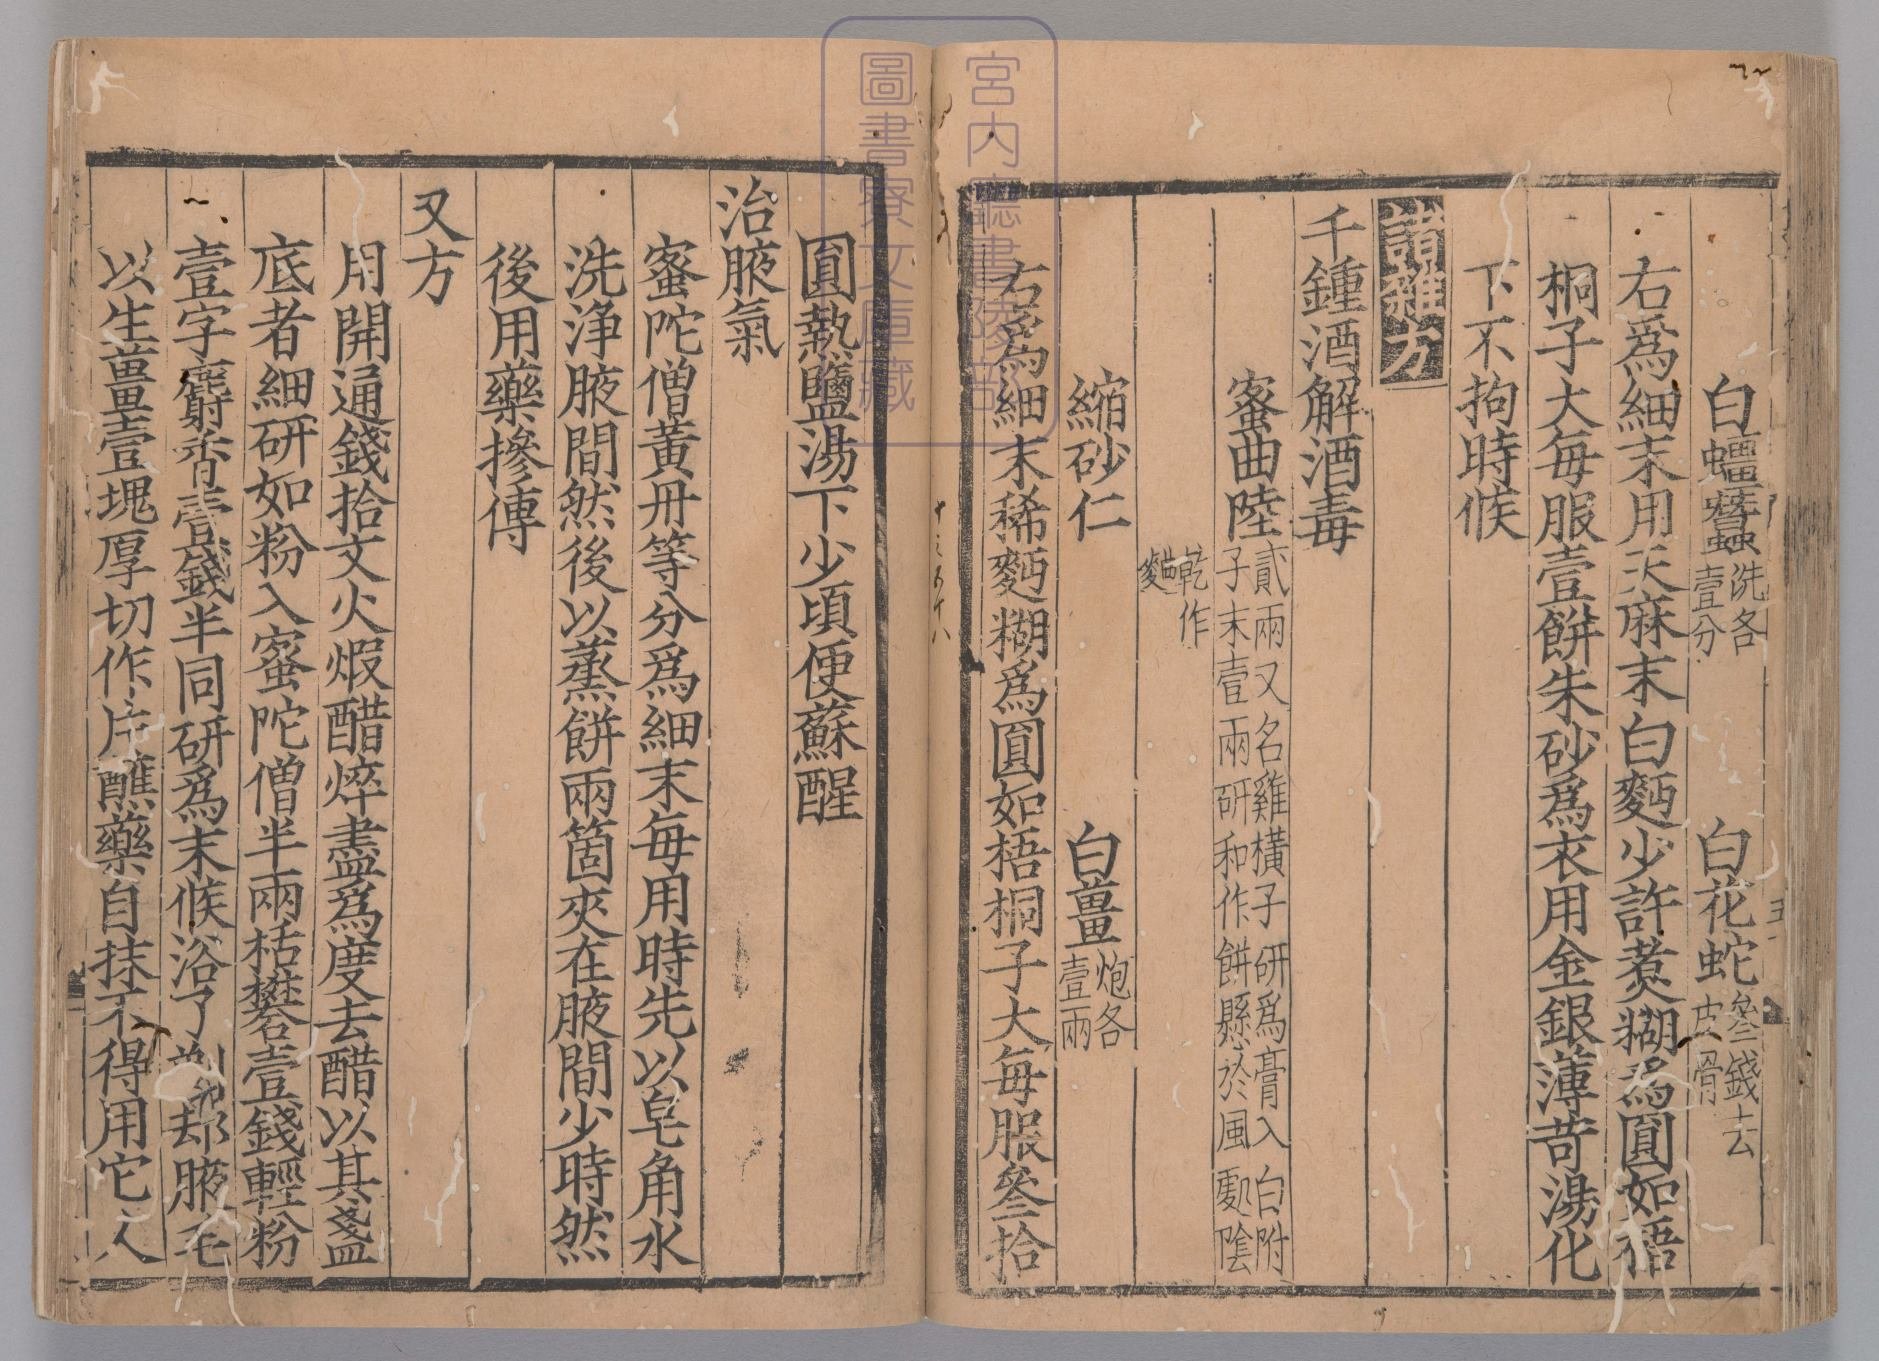 白殭蠶洗各壹分　白花蛇叁錢去皮骨
右爲細末用天麻末白麪少許煮糊爲圓如梧
桐子大每服壹餅朱砂爲衣用金銀薄苛湯化
下不拘時候
諸雜方
千鍾酒解酒毒
蜜曲陸貳兩又名雞橫子研爲膏入白附子末壹兩研和作餅懸於風處陰
乾作麯
縮砂仁　白薑炮各壹兩
右爲細末稀麪糊爲圓如梧桐子大每服叁拾
圓熱鹽湯下少頃便蘇醒
治腋氣
蜜陀僧黃丹等分爲細末每用時先以皂角水
洗淨腋間然後以蒸餅兩箇夾在腋間少時然
後用藥摻傅
又方
用開通錢拾文火煆醋焠盡爲度去醋以其盞
底者細研如粉入蜜陀僧半兩枯礬壹錢輕粉
壹字麝香壹錢半同研爲末候浴了剃却腋毛
以生薑壹塊厚切作片蘸藥自抹不得用它人
宮内廳書陵部
圖書寮文庫藏